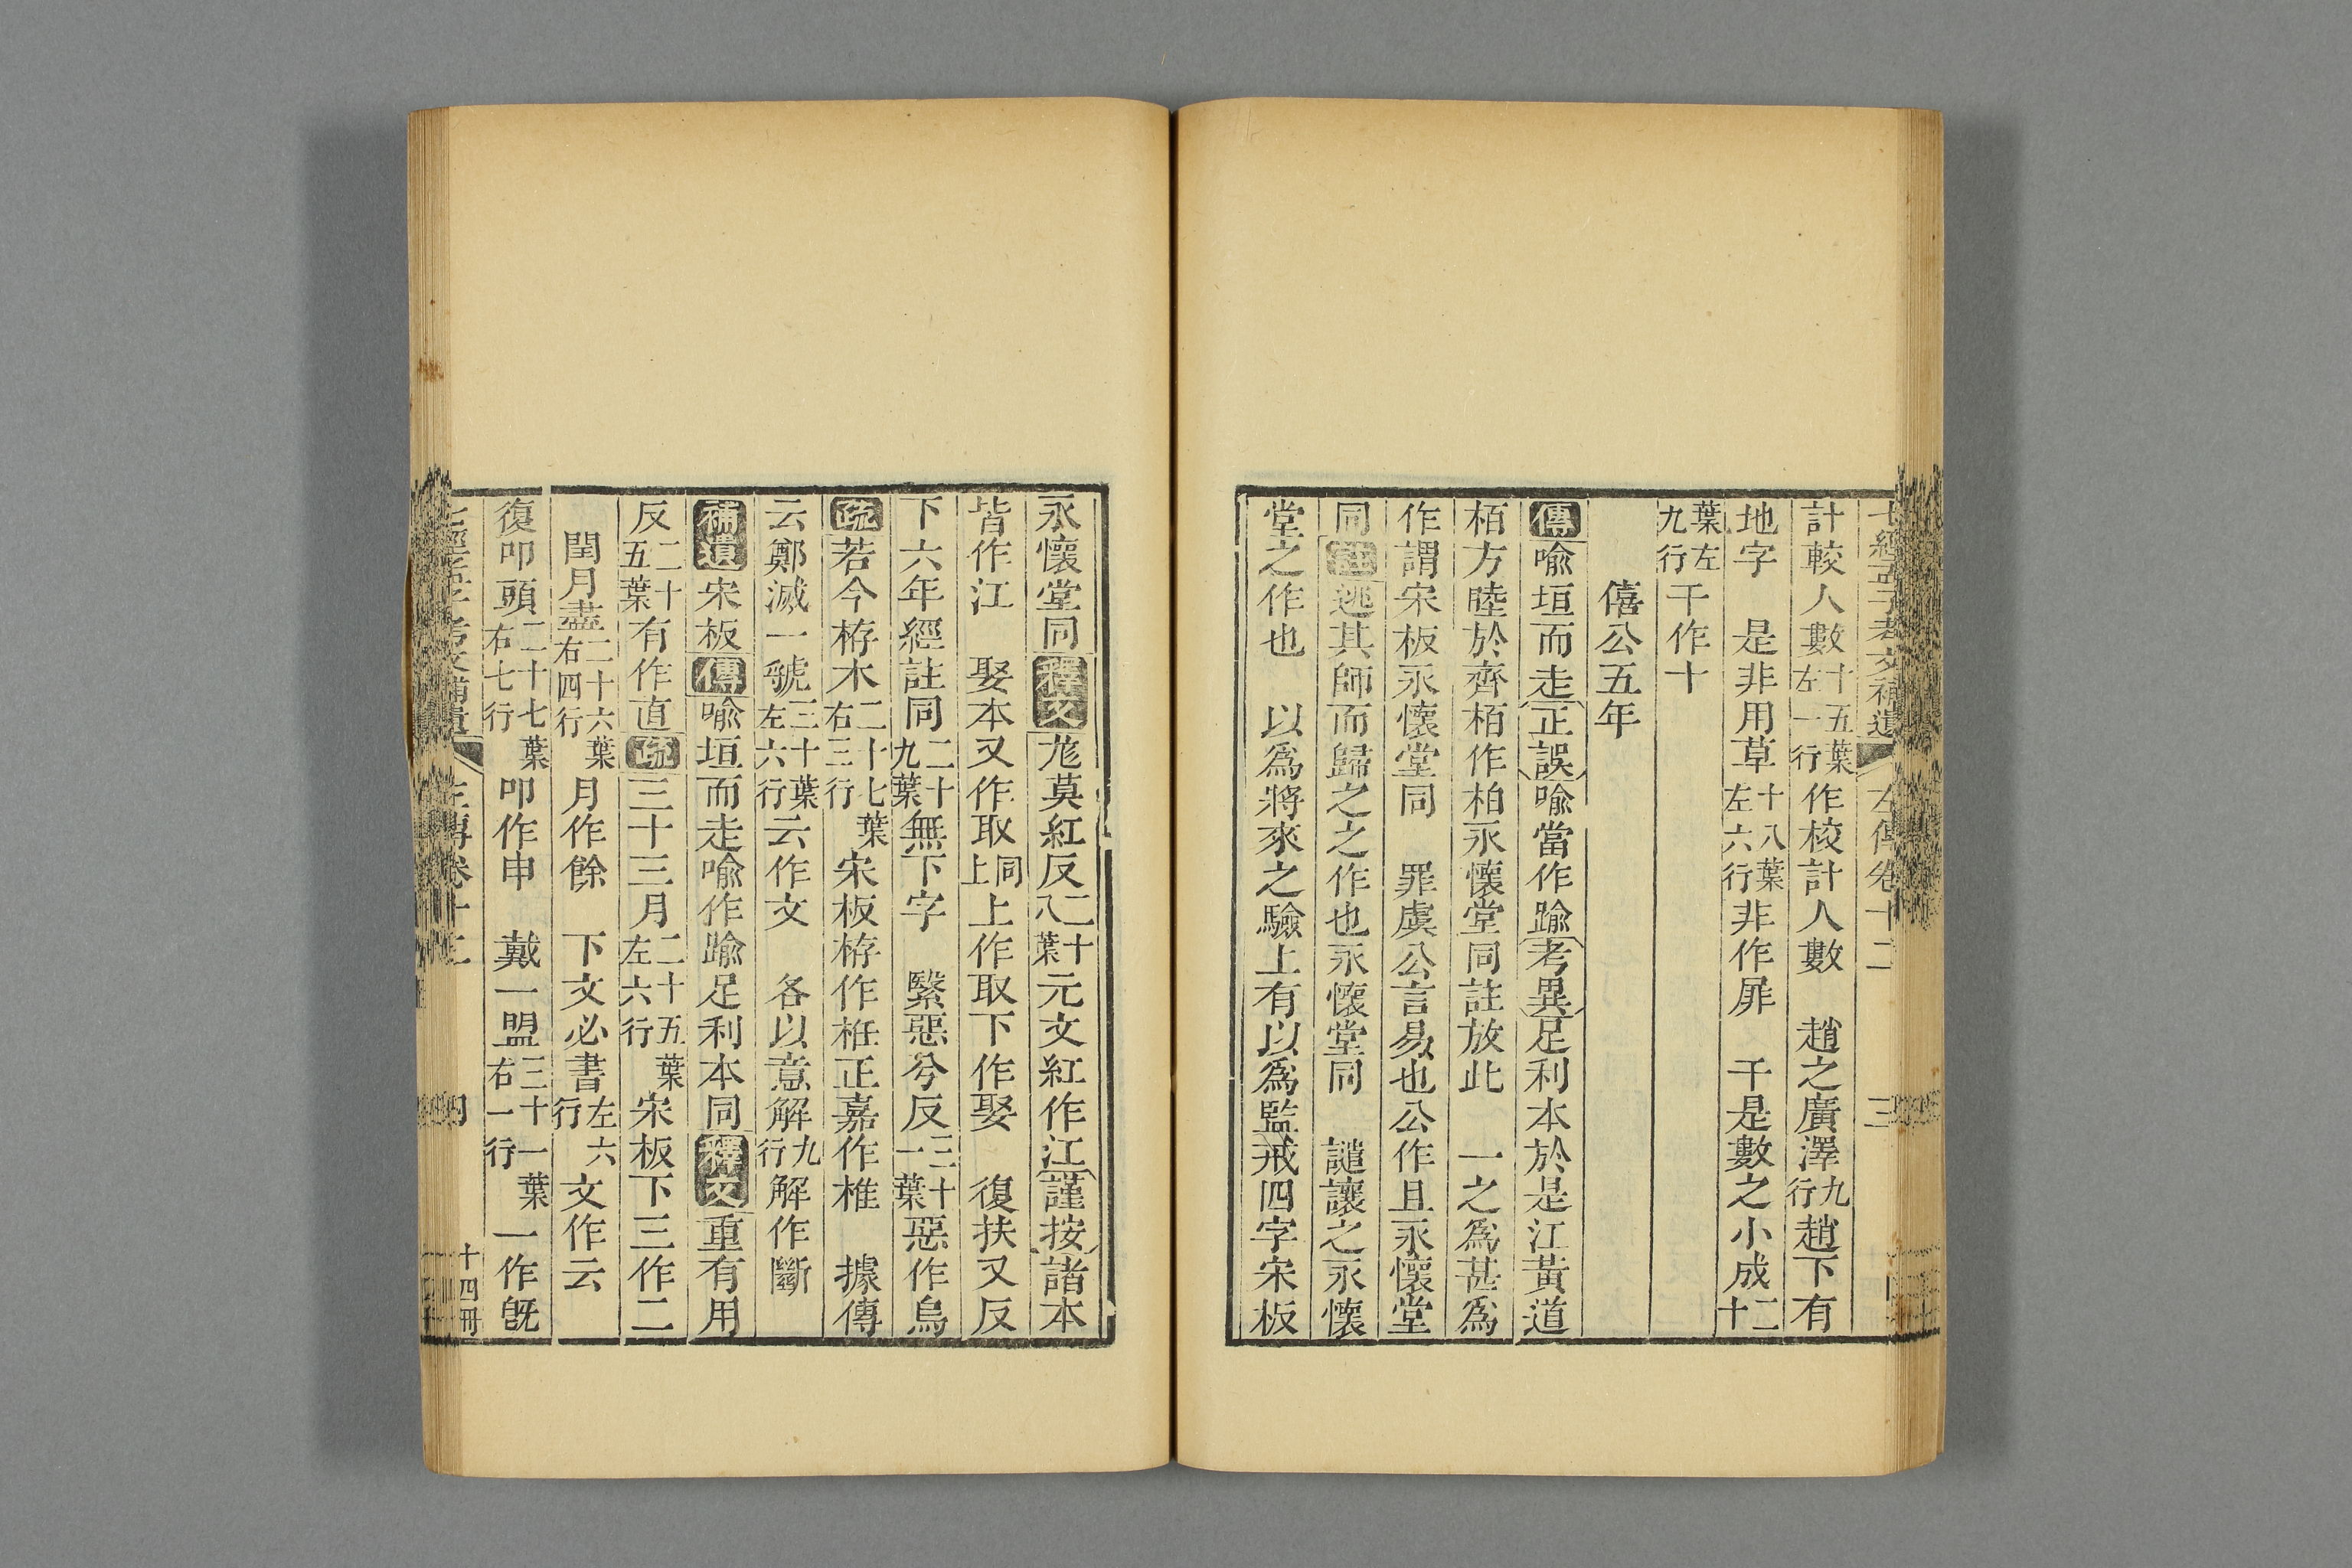 七經孟子考文補遺 左傳卷十二 三
計較人數十五葉左一行作校計人數 趙之廣澤九行趙下有
地字 是非用草十八葉左六行非作屝 干是數之小成二十
葉左九行干作十
僖公五年
傳喻垣而走正誤喻當作踰考異足利本於是江黃道
栢方睦於齊栢作柏永懷堂同註放此 一之為甚為
作謂宋板永懷堂同 罪虞公言易也公作且永懷堂
同註逃其師而歸之之作也永懷堂同 譴讓之永懷
堂之作也 以為將來之驗上有以為監戒四字宋板
永懷堂同釋文尨莫紅反二十八葉元文紅作江謹按諸本
皆作江 娶本又作取同上上作取下作娶 復扶又反
下六年經註同二十九葉無下字 繄惡兮反三十一葉惡作烏
疏若今栫木二十七葉右三行宋板栫作栣正嘉作椎 據傳
云鄭滅一虢三十葉左六行云作文 各以意解九行解作斷
補遺宋板傳喻垣而走喻作踰足利本同釋文重有用
反二十五葉有作直疏三十三月二十五葉左六行宋板下三作二
閏月盡二十六葉右四行月作餘 下文必書左六行文作云
復叩頭二十七葉右七行叩作申 戴一盟三十一葉右一行一作旣
七經孟子考文補遺 左傳卷十二 四 十四冊